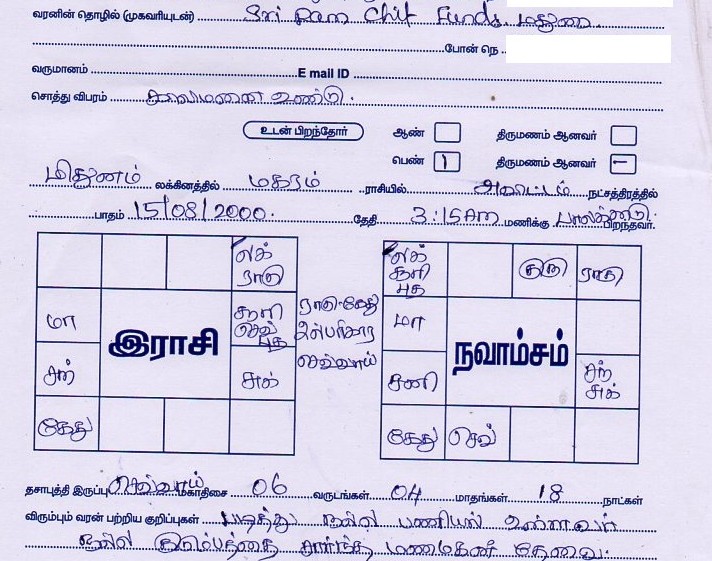 வரனின் தொழில் (முகவரியுடன்) Sri Ram Chit Funds. மதுரை.
போன் நெ
வருமானம் E mail ID
சொத்து விபரம் காலிமனை உண்டு.
உடன் பிறந்தோர் ஆண் திருமணம் ஆனவர்
பெண் 1 திருமணம் ஆனவர் 1
மிதுனம் லக்கினத்தில் மகரம் ராசியில் அவிட்டம் நட்சத்திரத்தில்
பாதம் 15/08/2000. தேதி 3:15AM மணிக்கு பிறந்தவர்.
லக்
ராகு
மா
சூரி
செவ்
புத
சந்
சுக்
கேது
இராசி
ராகு-கேது
பரிகார
செவ்வாய்
லக்
சூரி
புத
குரு
ராகு
மா
சனி
சந்
சுக்
கேது
செவ்
நவாம்சம்
தசாபுத்தி இருப்பு செவ்வாய் மகாதிசை 06 வருடங்கள் 04 மாதங்கள் 18 நாட்கள்
விரும்பும் வரன் பற்றிய குறிப்புகள் படித்து நல்ல பணியில் உள்ளவர்
நல்ல குடும்பத்தை சார்ந்த மணமகன் தேவை.